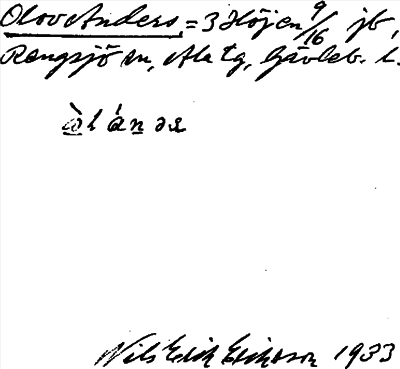 Olov Anders = 3 Höjen 9/16 jb,
Rengsjö sn, Ala tg, Gävleb. l.
Nils Erik Eriksson 1933